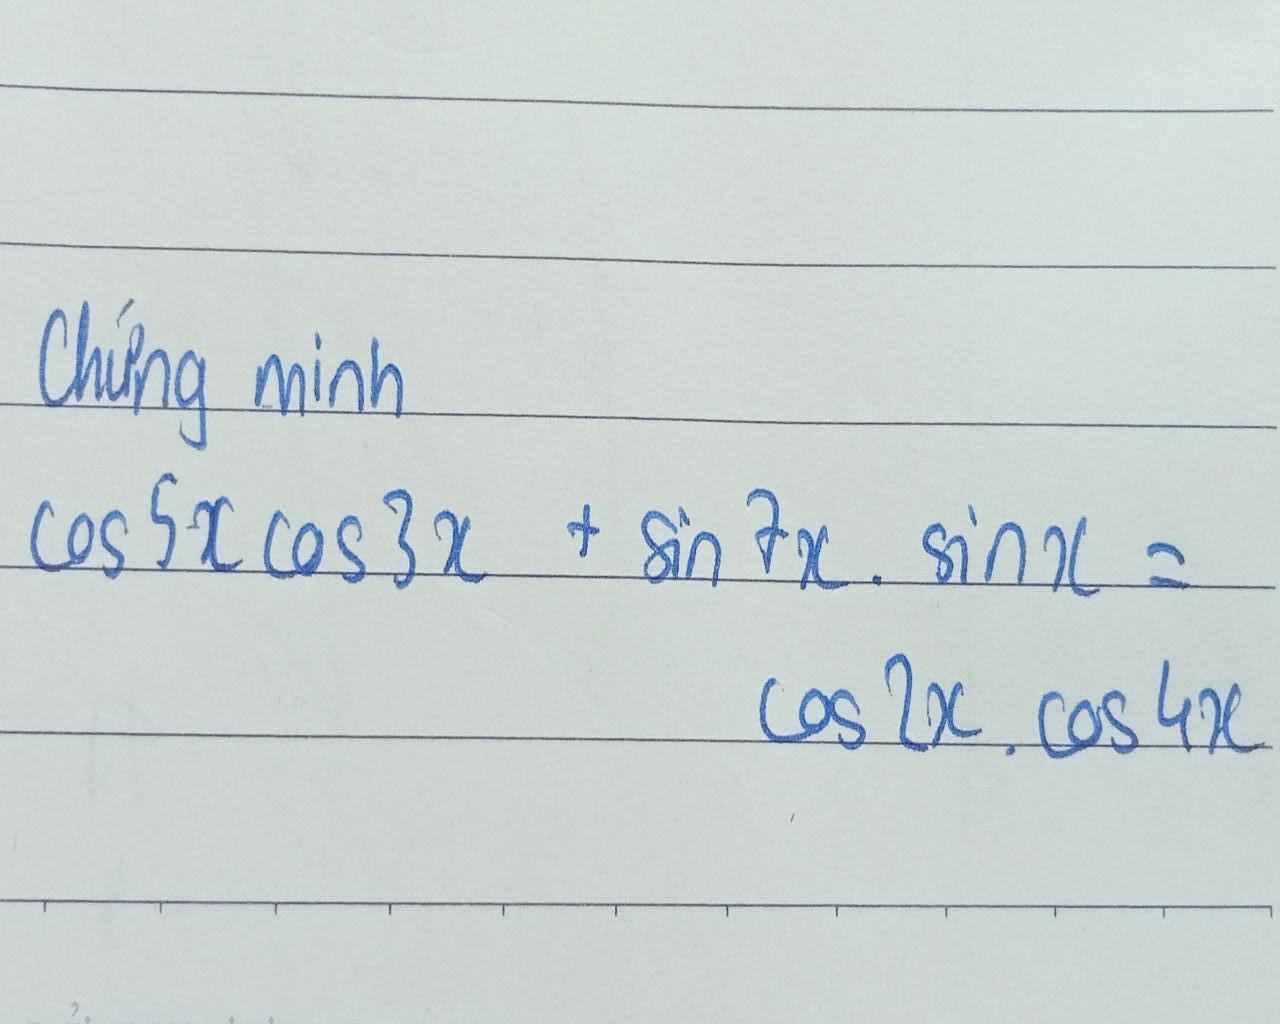 Chứng minh
cos5x cos3x + sin7x. sinx =
cos2x. cos4x